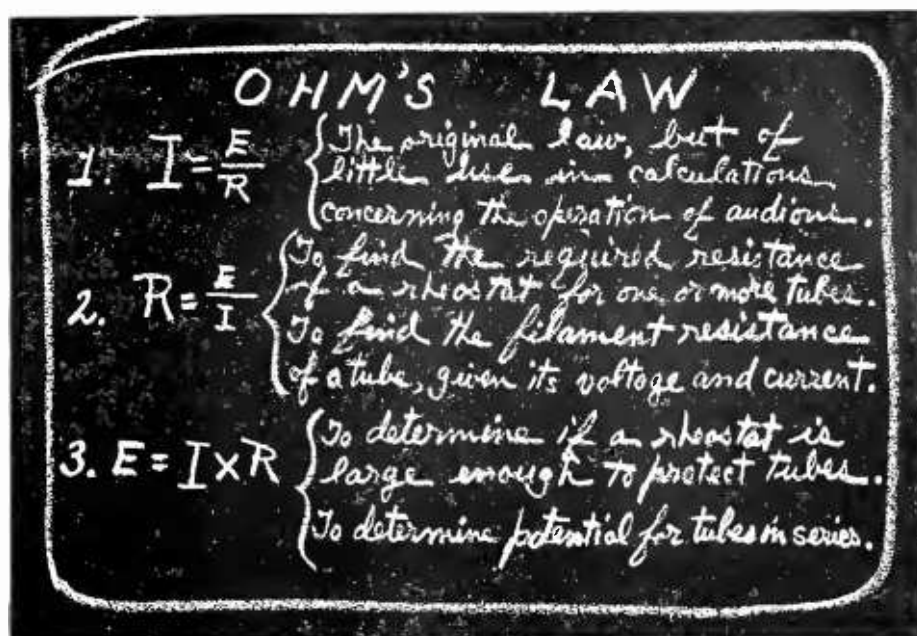 OHM'S LAW
1. I = E/R { The original law, but of
little use in calculations
concerning the operation of audions.
2. R = E/I { To find the required resistance
of a rheostat for one or more tubes.
To find the filament resistance
of a tube, given its voltage and current.
3. E = I x R { To determine if a rheostat is
large enough to protect tubes.
To determine potential for tubes in series.